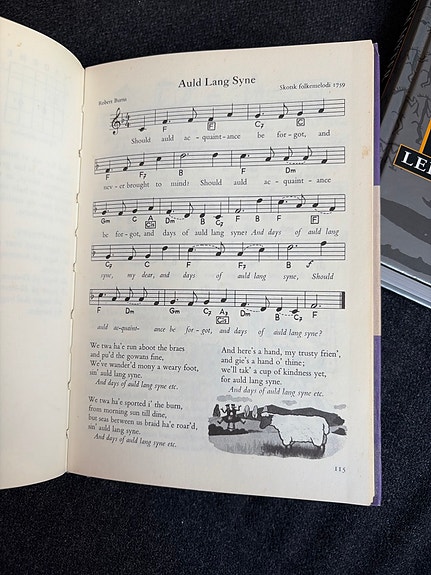 Auld Lang Syne
Robert Burns
Skotsk folkemelodi 1759
4
4
F F C7 C
Should auld ac - quaint - ance be for - got, and
F F7 B F Dm
nev - er brought to mind? Should auld ac - quaint - ance
Gm C A Dm B C7 F B F F
Cis
be for - got, and days of auld lang syne? And days of auld lang
C F F7 B f
syne, my dear, and days of auld lang syne, Should
F Dm Gm C7 A7 Dm B C7 F
Cis
auld ac-quaint- ance be for - got, and days of auld lang syne?
We twa ha'e run aboot the braes
and pu'd the gowans fine,
We've wander'd mony a weary foot,
sin' auld lang syne.
And days of auld lang syne etc.
We twa ha'e sported i' the burn,
from morning sun till dine,
but seas between us braid ha'e roar'd,
sin' auld lang syne.
And days of auld lang syne etc.
And here's a hand, my trusty frien',
and gie's a hand o' thine;
we'll tak' a cup of kindness yet,
for auld lang syne.
And days of auld lang syne etc.
115